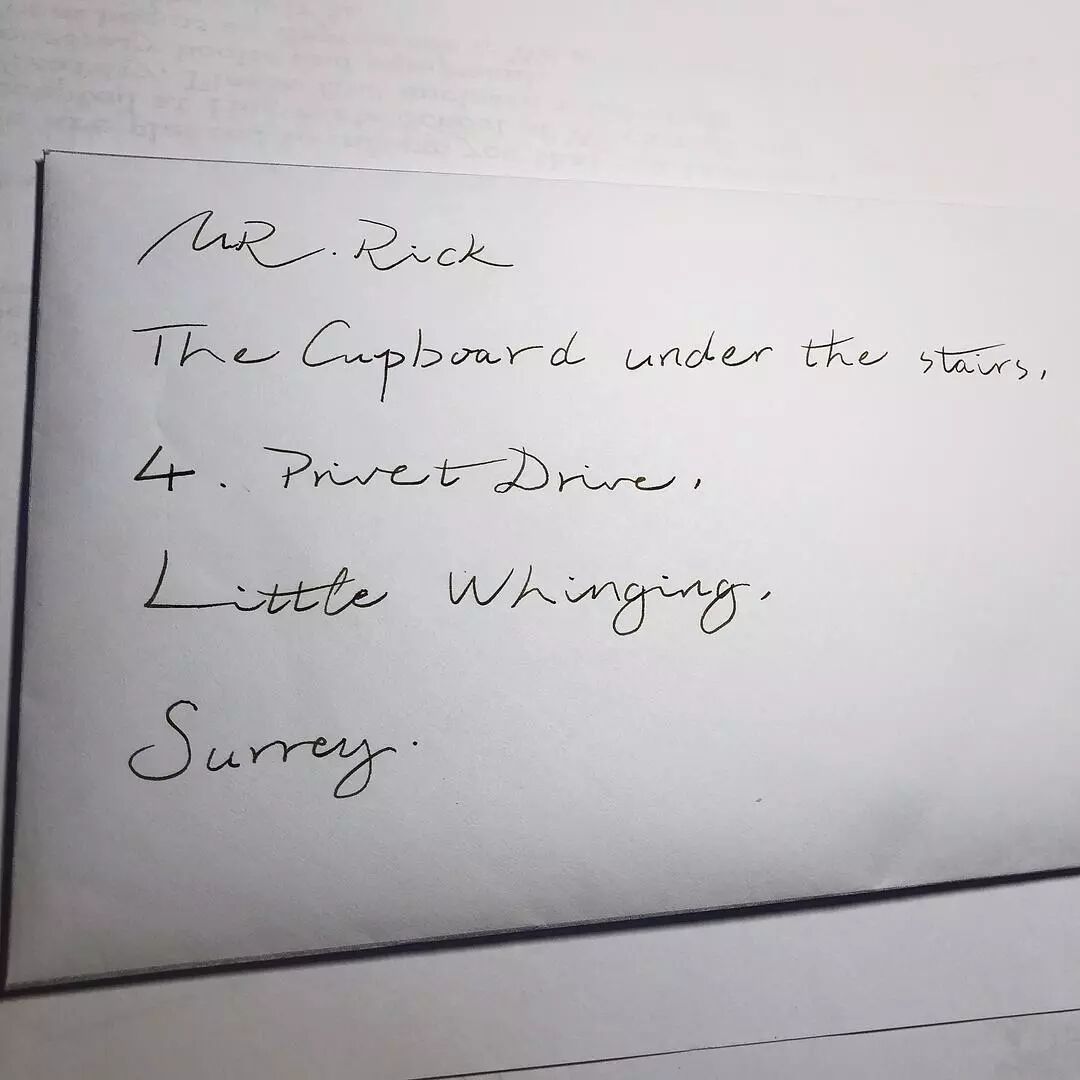 MR. Rick
The Cupboard under the stairs,
4. Privet Drive,
Little Whinging,
Surrey.